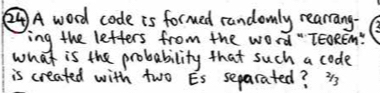 24 A word code is formed randomly rearrang-
ing the letters from the word "TEOREM".
what is the probability that such a code
is created with two Es separated? 2/3